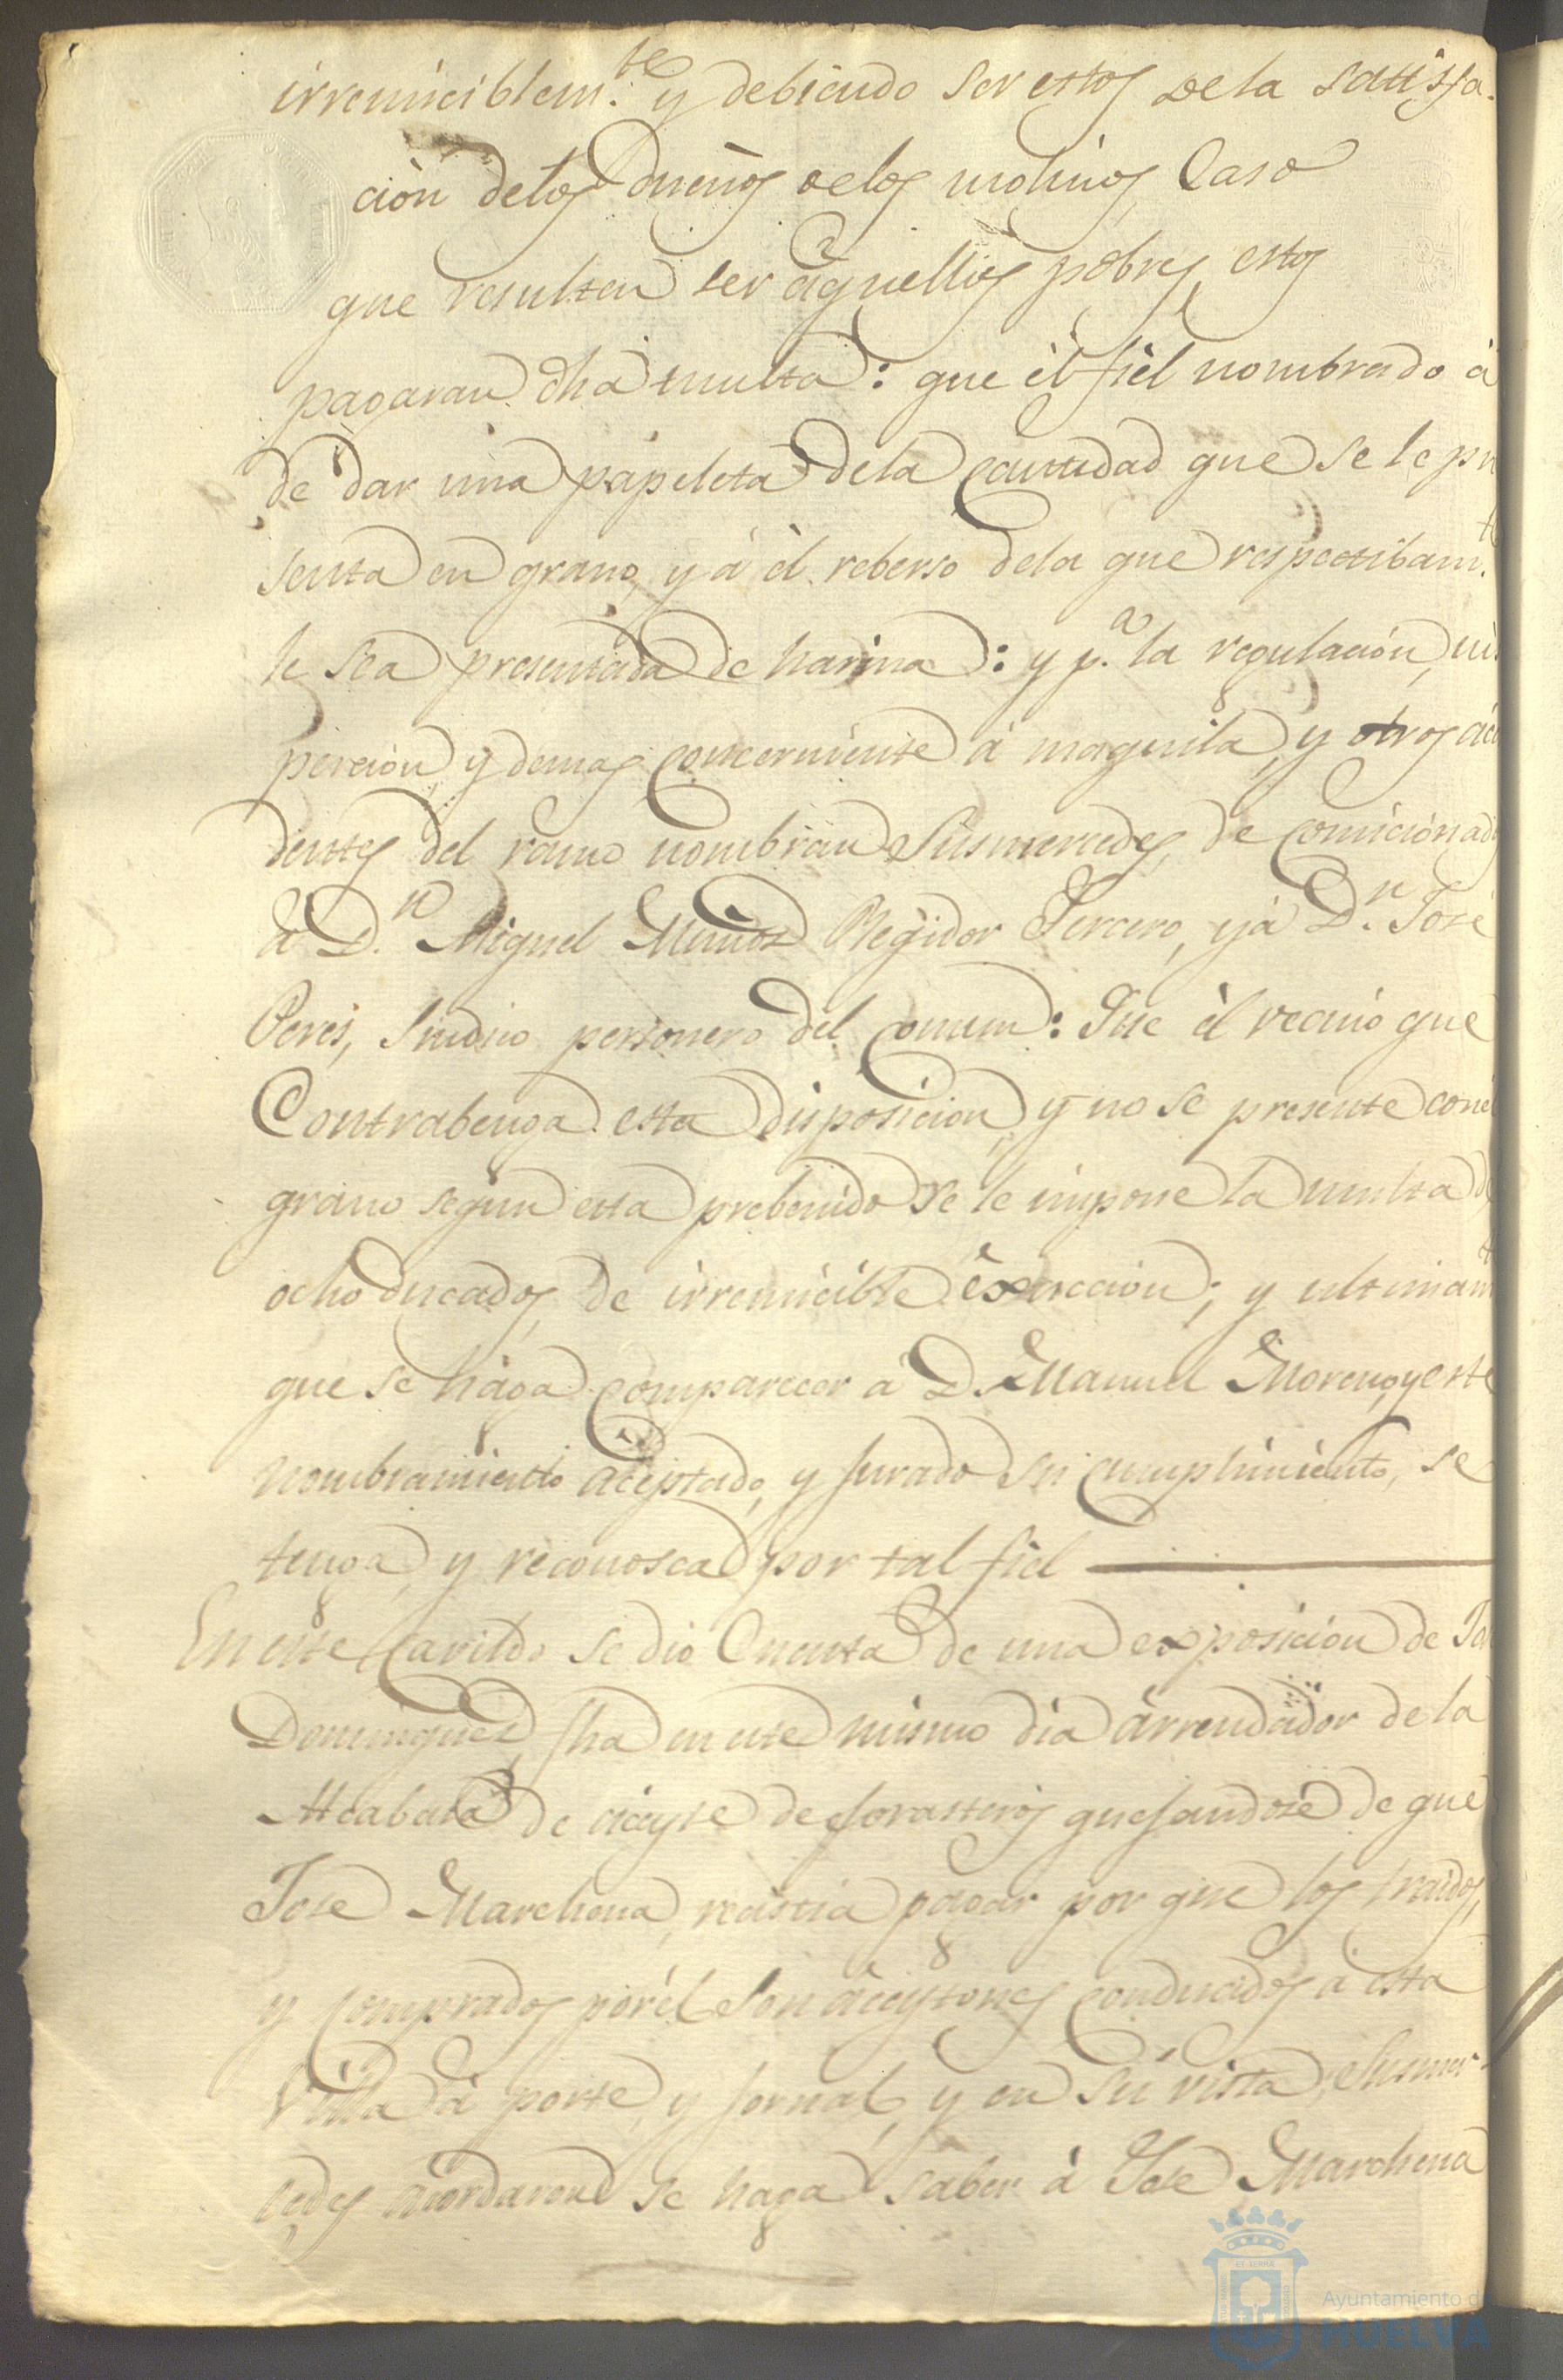 irremiciblem.te y debiendo ser estos de la satisfa-
ción delos dueños delos molinos, Caso
que resulten ser aquellos pobres, estos
pagaran dha multa: que èl fièl nombrado à
de dar una papeleta dela Cantidad que se le pre
senta en grano, y à èl reberso dela que respectibam.te
le sea presentada de harina: y p.a la regulación,
pección y demas concerniente à maquila, y otros
dentes del ramo nombran Susmercedes, de comicionad
à D.n Miguel Muñoz Regidor Tercero, y à D.n José
Peres, Sindico personero del comun: Que èl vecino que
Contrabenga esta disposicion, y no se presente con
grano segun esta prebenido se le impone la multa de
ocho ducados, de irremicible exaccion; y ultimam.t
que se hàga comparecer à D. Manuel Moreno, y este
nombramiento aceptado, y jurado su cumplimiento, se
tenga, y reconosca por tal fièl
En este Cavildo se dio Cuenta de una exposición de
Dominguez, fha en este mismo dia àrrendador de la
Alcabala de aceyte de forasteros quejandose de que
Jose Marchena, recistia pagar por que los traidos,
y comprados por èl son àceytones conducidos à esta
Villa à porte, y jornal, y en su vista, Susmer-
sedes acordaron se haga saber à Jose Marchena
Ayuntamiento de
HUELVA